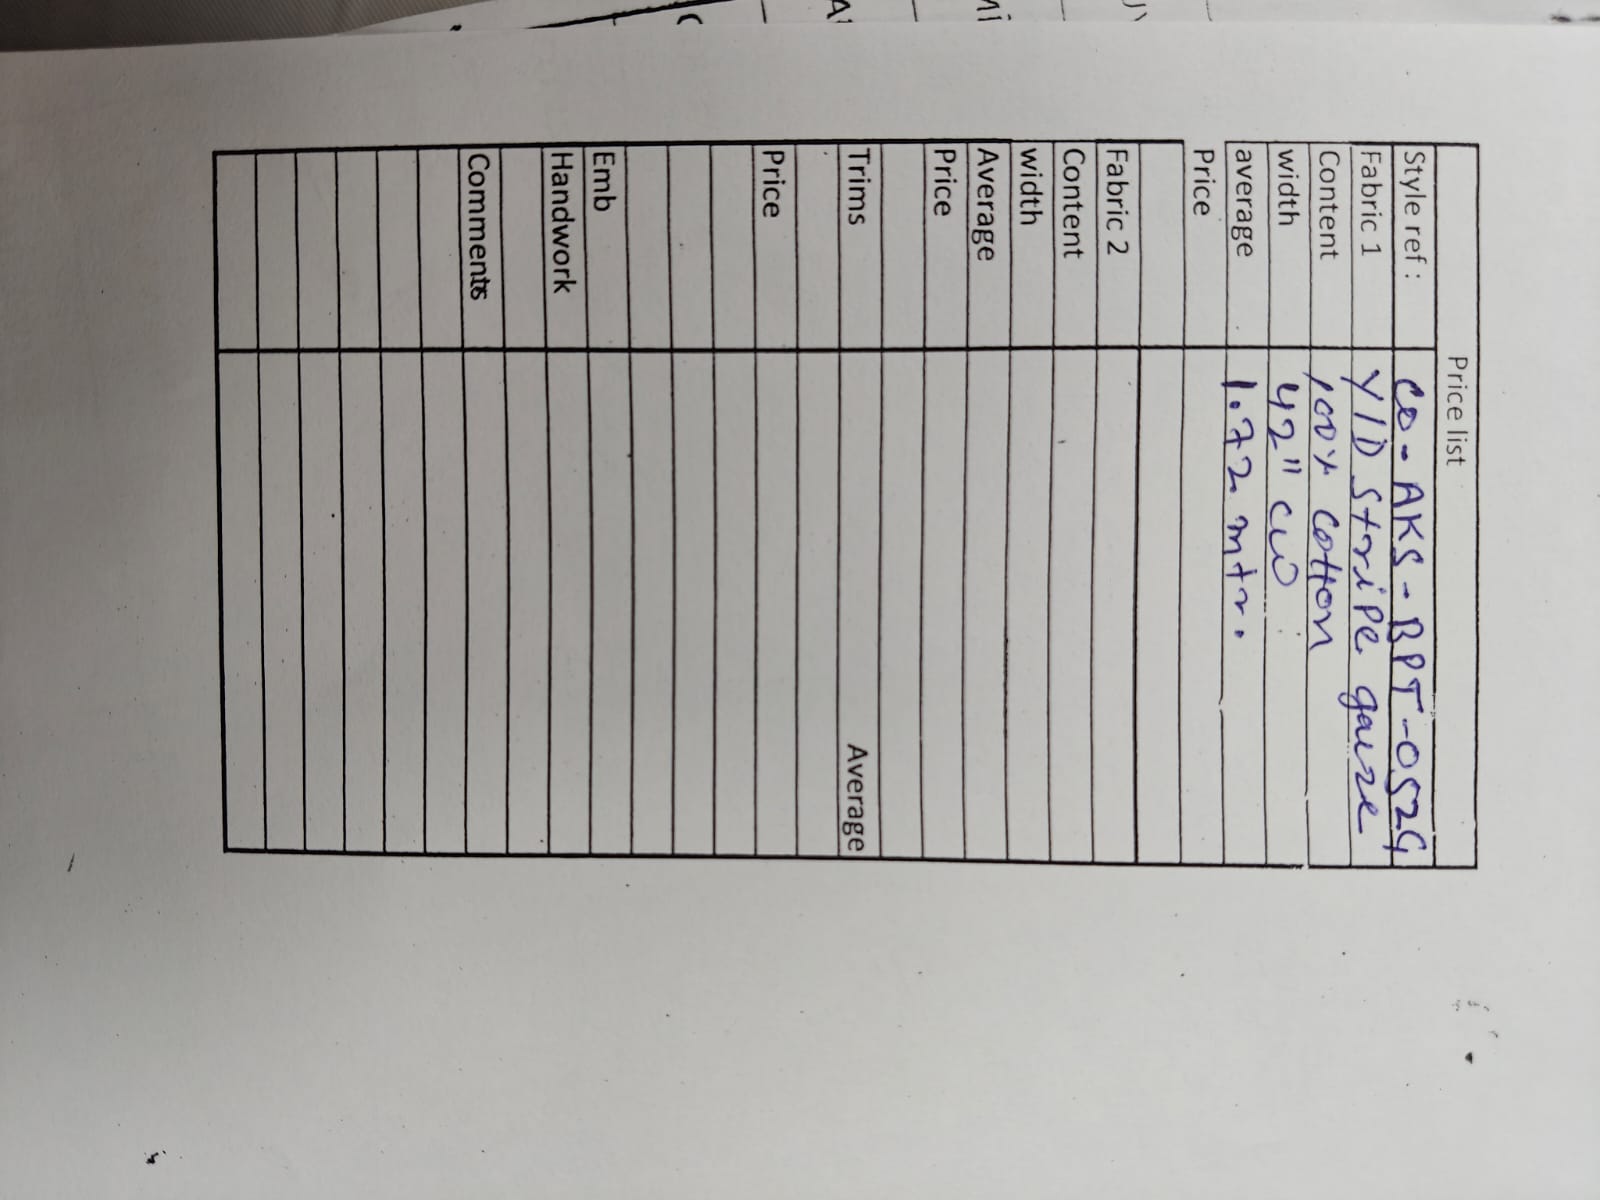 Price list
Style ref: CO-AKS-BPT-0529
Fabric 1 Y/D stripe gauze
Content 100% cotton
width 42" CW
average 1.72 mtr.
Price
Fabric 2
Content
width
Average
Price
Trims Average
Price
Emb
Handwork
Comments